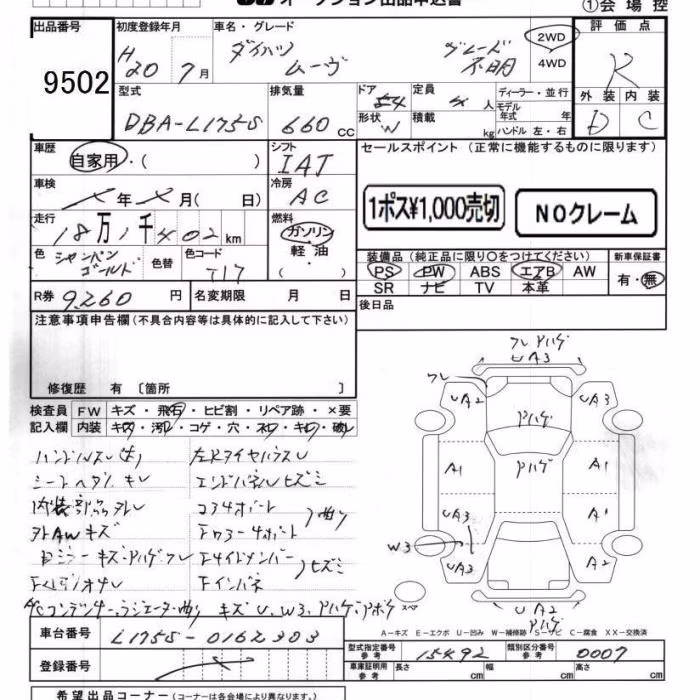 オークション出品申込書
①会場控
出品番号 9502
初度登録年月 H20 7月
車名・グレード ダイハツ ムーヴ グレード不明
2WD
4WD
評価点 R
外装 D 内装 C
型式 DBA-L175S
排気量 660 cc
ドア 5
形状 W
定員 4人
積載 kg
ディーラー・並行
モデル年式 年
ハンドル 左・右
車歴 自家用・( )
シフト IAT
セールスポイント(正常に機能するものに限ります)
車検 年 月( 日)
冷房 AC
1ポス¥1,000売切
NOクレーム
走行 18万1千402km
燃料 ガソリン 軽油・( )
色 シャンパンゴールド 色替
色コード T17
装備品(純正品に限り○をつけてください)
PS PW ABS エアB AW
SR ナビ TV 本革
新車保証書 有・無
R券 9260円
名変期限 月 日
後日品
注意事項申告欄(不具合内容等は具体的に記入して下さい)
修復歴 有〔箇所 〕
検査員記入欄
FW キズ・飛石・ヒビ割・リペア跡・×要
内装 キズ・汚れ・コゲ・穴・スレ・キレ・破レ
ハンドルスレ(大)
左Rタイヤハウスし
シートヘタレ キレ
エンドパネルヒズミ
内装部品ヌレ
コアサポート
外AWキズ
Fロアーサポート 曲り
ドミラーキズ・アハゲ・ワレ
Fサイドメンバー
Fインパネ
ヒズミ
ACコンデンサー、ラジエーター曲り キズ U、W3、アハゲ、アボケ
ワレ アハゲ
UA3
ワレ
UA2
UA3
アハゲ
A1
アハゲ
A1
UA3
A1
W3
UA3
A2
UA2
アハゲ
スペア
A-キズ E-エクボ U-凹み W-補修跡 S-サビ C-腐食 XX-交換済
車台番号 L175S-0162303
登録番号
型式指定番号 参考 15492
類別区分番号 参考 0007
車庫証明用 参考 長さ cm 幅 cm 高さ cm
希望出品コーナー(コーナーは各会場により異なります。)